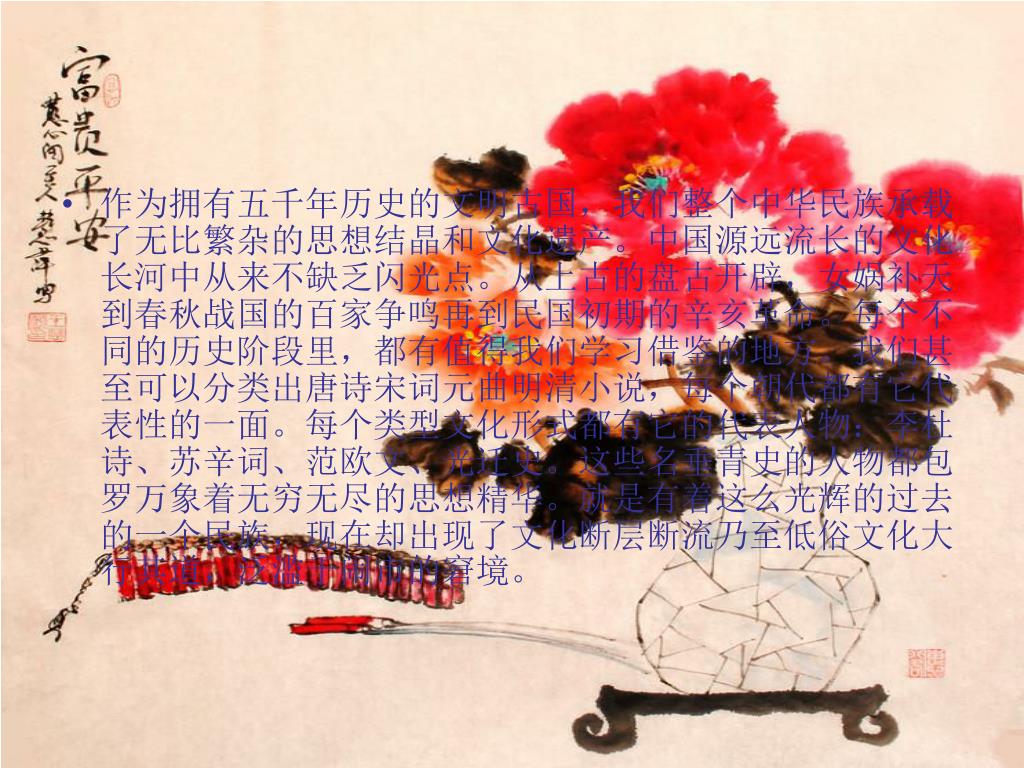 富贵平安
• 作为拥有五千年历史的文明古国，我们整个中华民族承载
了无比繁杂的思想结晶和文化遗产。中国源远流长的文化
长河中从来不缺乏闪光点。从上古的盘古开辟，女娲补天
到春秋战国的百家争鸣再到民国初期的辛亥革命。每个不
同的历史阶段里，都有值得我们学习借鉴的地方。我们甚
至可以分类出唐诗宋词元曲明清小说，每个朝代都有它代
表性的一面。每个类型文化形式都有它的代表人物：李杜
诗、苏辛词、范欧文、光迁史。这些名垂青史的人物都包
罗万象着无穷无尽的思想精华。就是有着这么光辉的过去
的一个民族，现在却出现了文化断层断流乃至低俗文化大
行其道，泛滥于闹市的窘境。